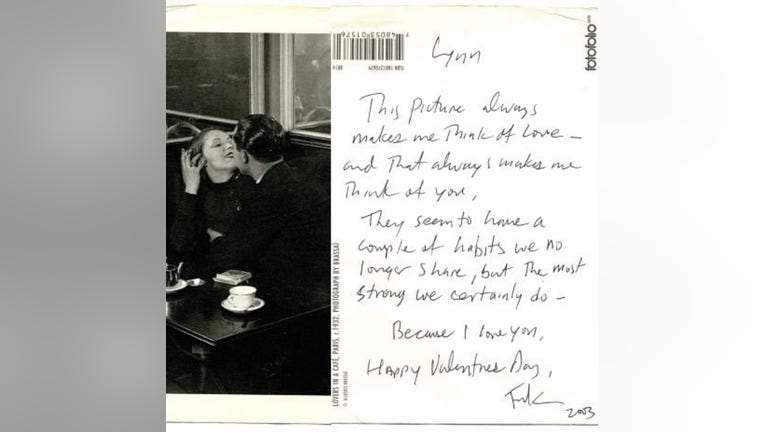 Lynn
This Picture always
makes me Think of Love –
and That always makes me
Think of you,
They seem to have a
couple of habits we no
longer share, but The most
strong we certainly do –
Because I love you,
Happy Valentines Day,
2003
fotofolio
LOVERS IN A CAFÉ, PARIS, c.1932. PHOTOGRAPH BY BRASSAÏ